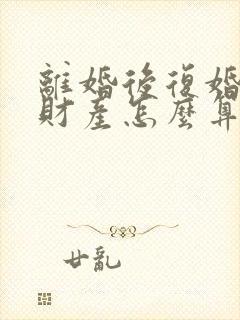 離婚後復婚
財產怎麼算
廿亂